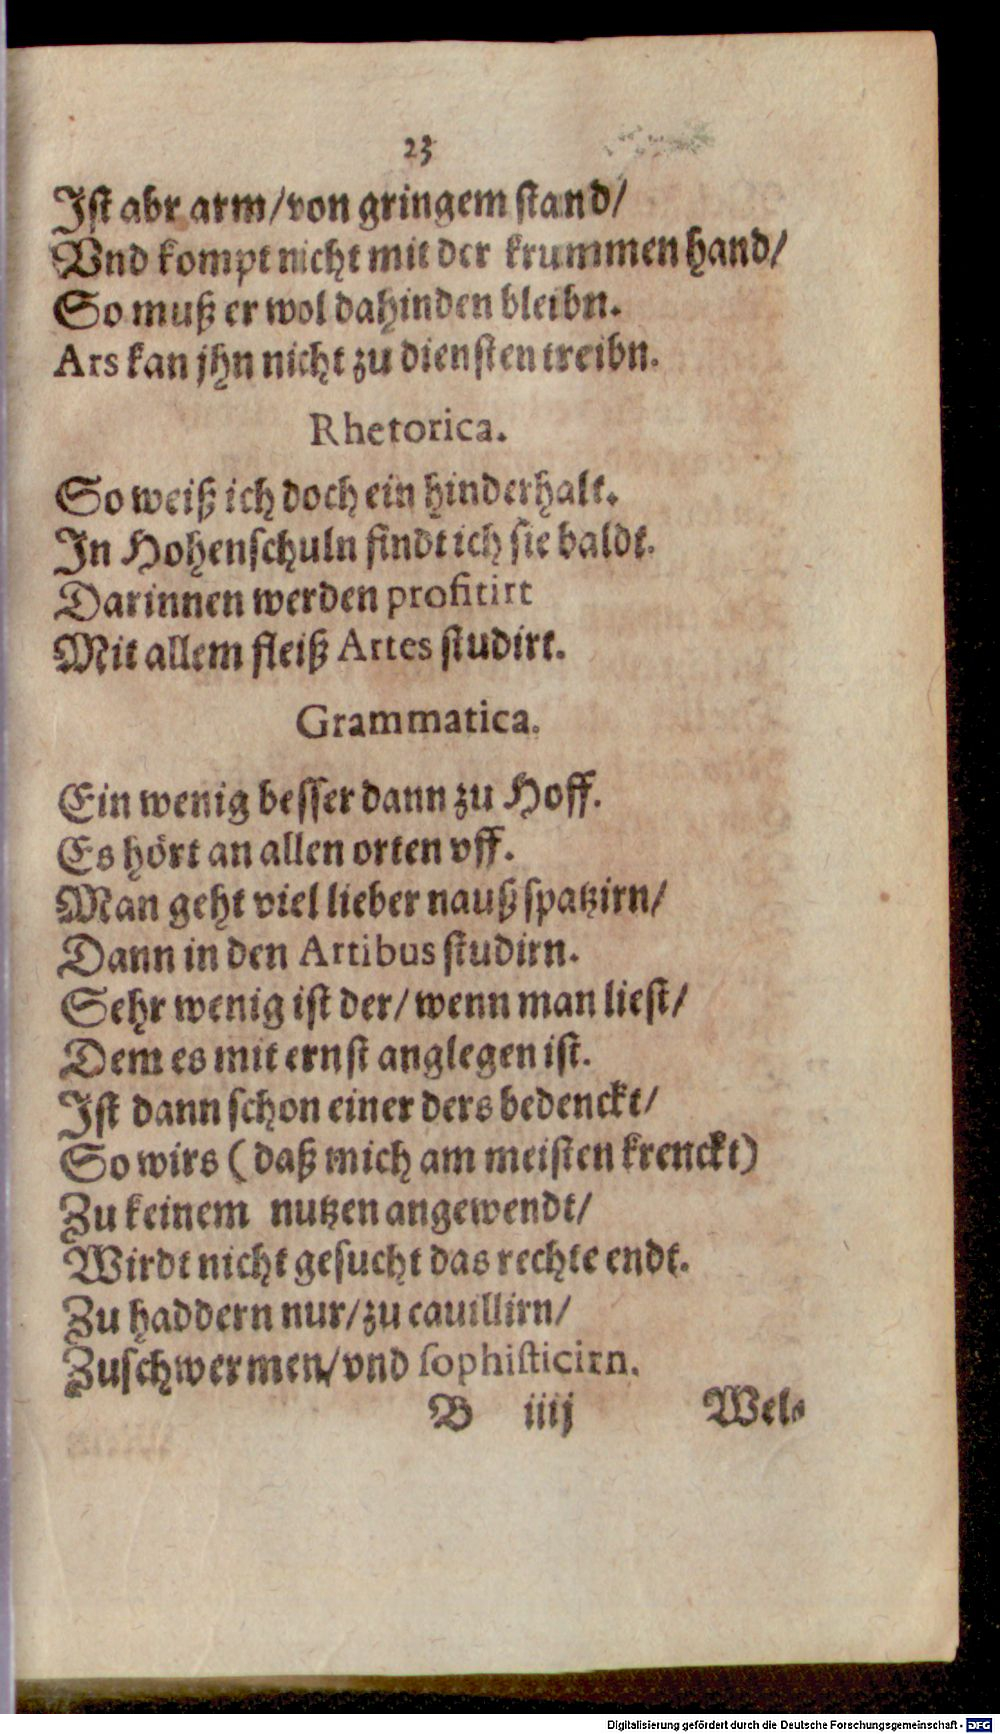 23
Ist abr arm/von gringem stand/
Vnd kompt nicht mit der krummen hand/
So muß er wol dahinden bleibn.
Ars kan jhn nicht zu diensten treibn.
Rhetorica.
So weiß ich doch ein hinderhalt.
In Hohenschuln findt ich sie baldt.
Darinnen werden profitirt
Mit allem fleiß Artes studirt.
Grammatica.
Ein wenig besser dann zu Hoff.
Es hört an allen orten vff.
Man geht viel lieber nauß spatzirn/
Dann in den Artibus studirn.
Sehr wenig ist der/ wenn man liest/
Dem es mit ernst anglegen ist.
Ist dann schon einer ders bedenckt/
So wirs (daß mich am meisten krenckt)
Zu keinem nutzen angewendt/
Wirdt nicht gesucht das rechte endt.
Zu haddern nur/zu cauillirn/
Zuschwermen/vnd sophisticirn.
B iiij Wel-
Digitalisierung gefördert durch die Deutsche Forschungsgemeinschaft - DFG